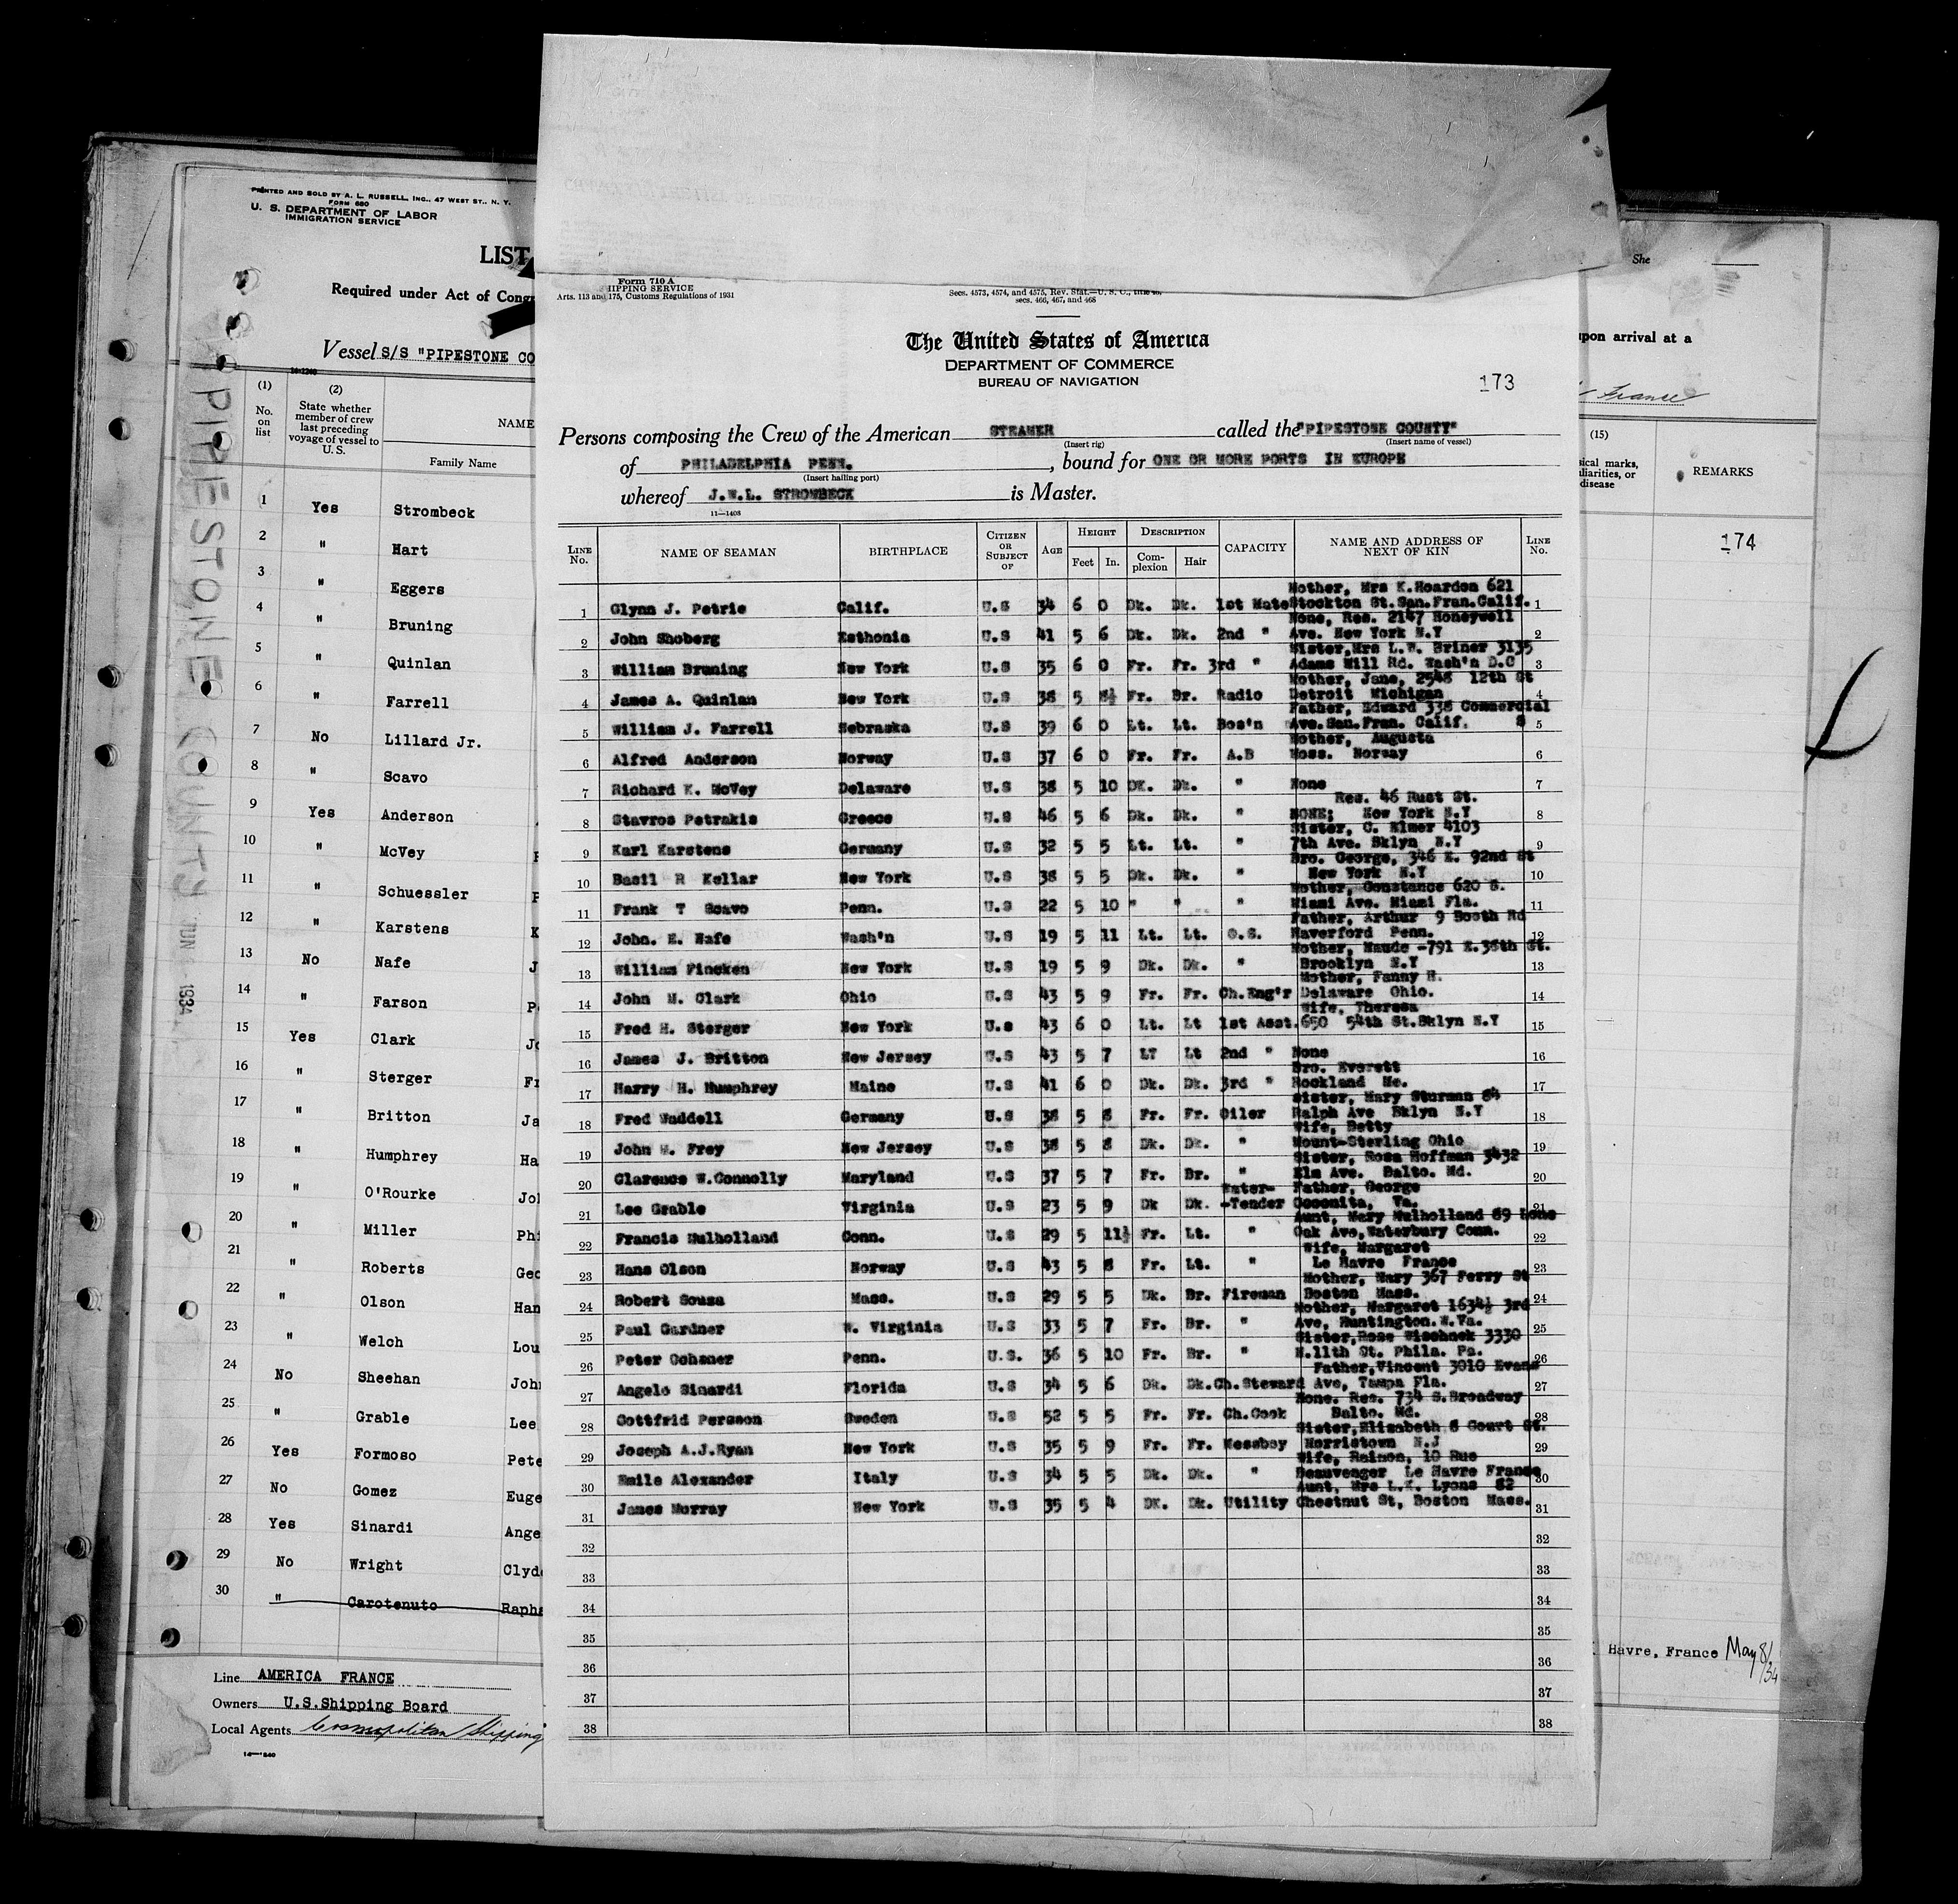 PRINTED AND SOLD BY A. L. RUSSELL, INC., 47 WEST ST., N. Y.
FORM 680
U. S. DEPARTMENT OF LABOR
IMMIGRATION SERVICE
LIST
Required under Act of Congr
Vessel S/S "PIPESTONE CO
(1) (2)
No. on list
State whether member of crew last preceding voyage of vessel to U.S.
NAME
Family Name
1 Yes Strombeck
2 " Hart
3 " Eggers
4 " Bruning
5 " Quinlan
6 " Farrell
7 No Lillard Jr.
8 " Scavo
9 Yes Anderson
10 " McVey
11 " Schuessler
12 " Karstens K
13 No Nafe J
14 " Farson
15 Yes Clark Jo
16 " Sterger Fr
17 " Britton Ja
18 " Humphrey Ha
19 " O'Rourke Joh
20 " Miller Phi
21 " Roberts Geo
22 " Olson Han
23 " Welch Lou
24 No Sheehan John
25 " Grable Lee
26 Yes Formoso Pete
27 No Gomez Euge
28 Yes Sinardi Ange
29 No Wright Clyde
30 " Carotenuto Rapha
Line AMERICA FRANCE
Owners U.S.Shipping Board
Local Agents Cosmopolitan Shipping
14—1240
PIPESTONE COUNTY JUN 1934
Form 710 A
SHIPPING SERVICE
Arts. 113 and 175, Customs Regulations of 1931
Secs. 4573, 4574, and 4575, Rev. Stat.—U. S. C., title 46,
secs. 466, 467, and 468
The United States of America
DEPARTMENT OF COMMERCE
BUREAU OF NAVIGATION
173
Persons composing the Crew of the American STEAMER called the "PIPESTONE COUNTY"
(Insert rig) (Insert name of vessel)
of PHILADELPHIA PENN. , bound for ONE OR MORE PORTS IN EUROPE
(Insert hailing port)
whereof J.W.L. STROMBECK is Master.
11—1408
LINE No. NAME OF SEAMAN BIRTHPLACE CITIZEN OR SUBJECT OF AGE HEIGHT Feet In. DESCRIPTION Complexion Hair CAPACITY NAME AND ADDRESS OF NEXT OF KIN LINE No.
Mother, Mrs K.Reardon 621
1 Glynn J. Petrie Calif. U.S 34 6 0 Dk. Dk. 1st Mate Stockton St.San.Fran.Calif. 1
None, Res. 2147 Honeywell
2 John Shoberg Esthonia U.S 41 5 6 Dk. Dk. 2nd " Ave. New York N.Y 2
Sister,Mrs L.W. Briner 3135
3 William Bruning New York U.S 35 6 0 Fr. Fr. 3rd " Adams Mill Rd. Wash'n D.C 3
Mother, Jane, 2548 12th St
4 James A. Quinlan New York U.S 38 5 8½ Fr. Br. Radio Detroit Michigan 4
Father, Edward 338 Commercial
5 William J. Farrell Nebraska U.S 39 6 0 Lt. Lt. Bos'n Ave.San.Fran. Calif. 5
Mother, Augusta
6 Alfred Anderson Norway U.S 37 6 0 Fr. Fr. A.B Moss. Norway 6
7 Richard K. McVey Delaware U.S 38 5 10 DK. Dk. " None 7
Res. 46 Rust St.
8 Stavros Petrakis Greece U.S 46 5 6 Dk. Dk. " NONE; New York N.Y 8
Sister, C. Elmer 4103
9 Karl Karstens Germany U.S 32 5 5 Lt. Lt. " 7th Ave. Bklyn N.Y 9
Bro. George, 346 E. 92nd St
10 Basil R Kellar New York U.S 38 5 5 Dk. Dk. " New York N.Y 10
Mother, Constance 620 S.
11 Frank T Scavo Penn. U.S 22 5 10 " " " Miami Ave. Miami Fla. 11
Father, Arthur 9 Booth Rd
12 John. E. Nafe Wash'n U.S 19 5 11 Lt. Lt. O.S. Haverford Penn. 12
Mother, Maude -791 E.38th St.
13 William Fincken New York U.S 19 5 9 Dk. Dk. " Brooklyn N.Y 13
Mother, Fanny H.
14 John M. Clark Ohio U.S 43 5 9 Fr. Fr. Ch.Eng'r Delaware Ohio. 14
Wife, Theresa
15 Fred H. Sterger New York U.s 43 6 0 Lt. Lt 1st Asst. 650 54th St.Bklyn N.Y 15
16 James J. Britton New Jersey U.S 43 5 7 LT Lt 2nd " None 16
Bro. Everett
17 Harry H. Humphrey Maine U.S 41 6 0 Dk. Dk. 3rd " Rockland Me. 17
Sister, Mary Sturman 84
18 Fred Waddell Germany U.S 38 5 8 Fr. Fr. Oiler Ralph Ave Bklyn N.Y 18
Wife, Betty
19 John W. Frey New Jersey U.S 38 5 8 Dk. Dk. " Mount-Sterling Ohio 19
Sister, Rosa Hoffman 3432
20 Clarence W.Connolly Maryland U.S 37 5 7 Fr. Br. " Elm Ave. Balto. Md. 20
Water- Father, George
21 Lee Grable Virginia U.S 23 5 9 Dk Dk. -Tender Va. 21
Aunt, Mary Mulholland 89 Lone
22 Francis Mulholland Conn. U.S 29 5 11½ Fr. Lt. " Oak Ave,Waterbury Conn. 22
Wife, Margaret
23 Hans Olson Norway U.S 43 5 8 Fr. Lt. " Le Havre France 23
Mother, Mary 367 Ferry St
24 Robert Souza Mass. U.S 29 5 5 Dk. Br. Fireman Boston Mass. 24
Mother, Margaret 1634½ 3rd
25 Paul Gardner W. Virginia U.S 33 5 7 Fr. Br. " Ave, Huntington.W.Va. 25
Sister,Rose 3330
26 Peter Gohsner Penn. U.S. 36 5 10 Fr. Br. " N.11th St. Phila. Pa. 26
Father,Vincent 3010 Evans
27 Angelo Sinardi Florida U.S 34 5 6 Dk. Dk. Ch.Steward Ave, Tampa Fla. 27
None. Res. 734 S.Broadway
28 Gottfrid Persson Sweden U.S 52 5 5 Fr. Fr. Ch.Cook Balto. Md. 28
Sister,Elizabeth 8 Court St.
29 Joseph A.J.Ryan New York U.S 35 5 9 Fr. Fr. Messboy Morristown N.J 29
Wife, 10 Rue
30 Emile Alexander Italy U.S 34 5 5 Dk. Dk. " Le Havre France 30
Aunt, Mrs L.K. Lyons 82
31 James Murray New York U.S 35 5 4 DK. Dk. Utility Chestnut St, Boston Mass. 31
32 32
33 33
34 34
35 35
36 36
37 37
38 38
She
upon arrival at a
France
(15)
sical marks,
liarities, or
disease
REMARKS
174
Havre, France May 8/34